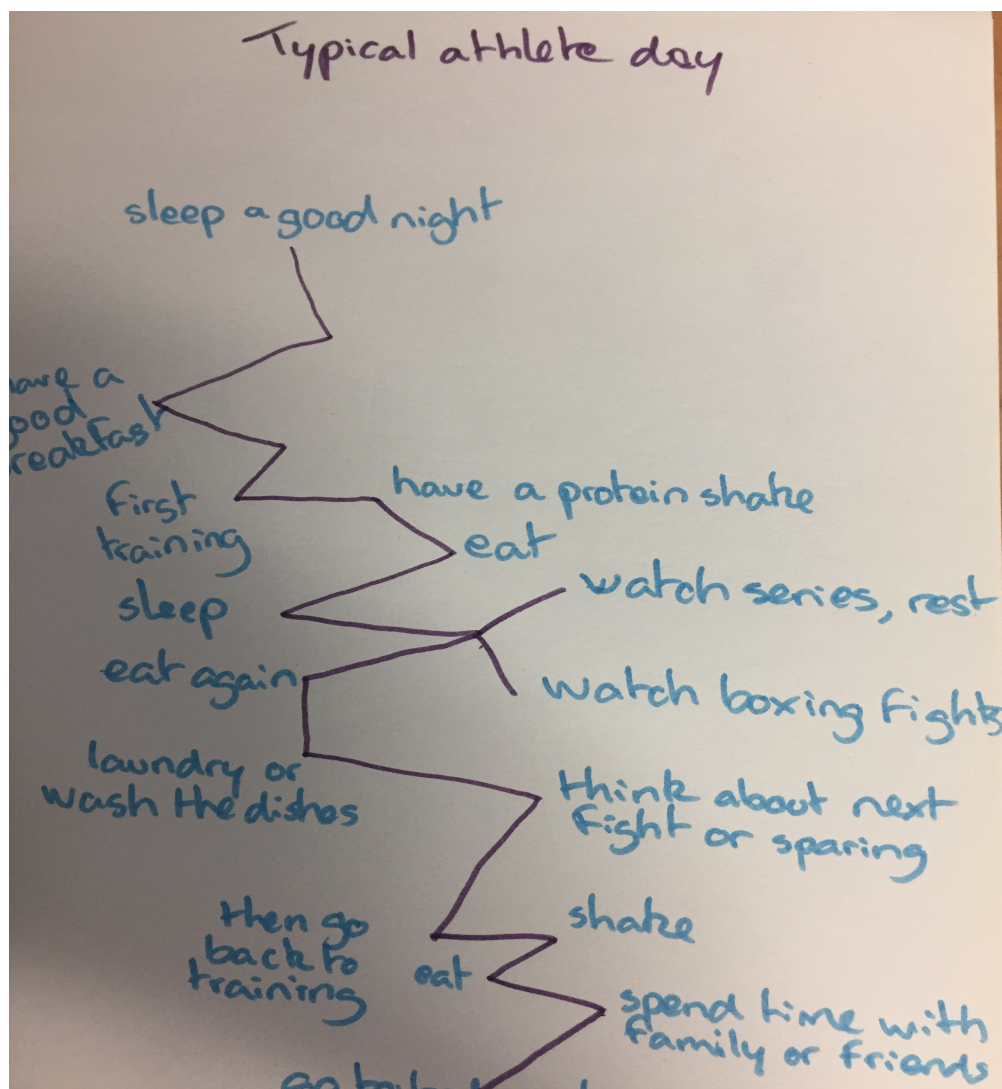 Typical athlete day
sleep a good night
have a
good
breakfast
first
training
have a protein shake
eat
sleep
watch series, rest
watch boxing fights
eat again
laundry or
wash the dishes
think about next
fight or sparing
then go
back to
training
shake
eat
spend time with
family or friends